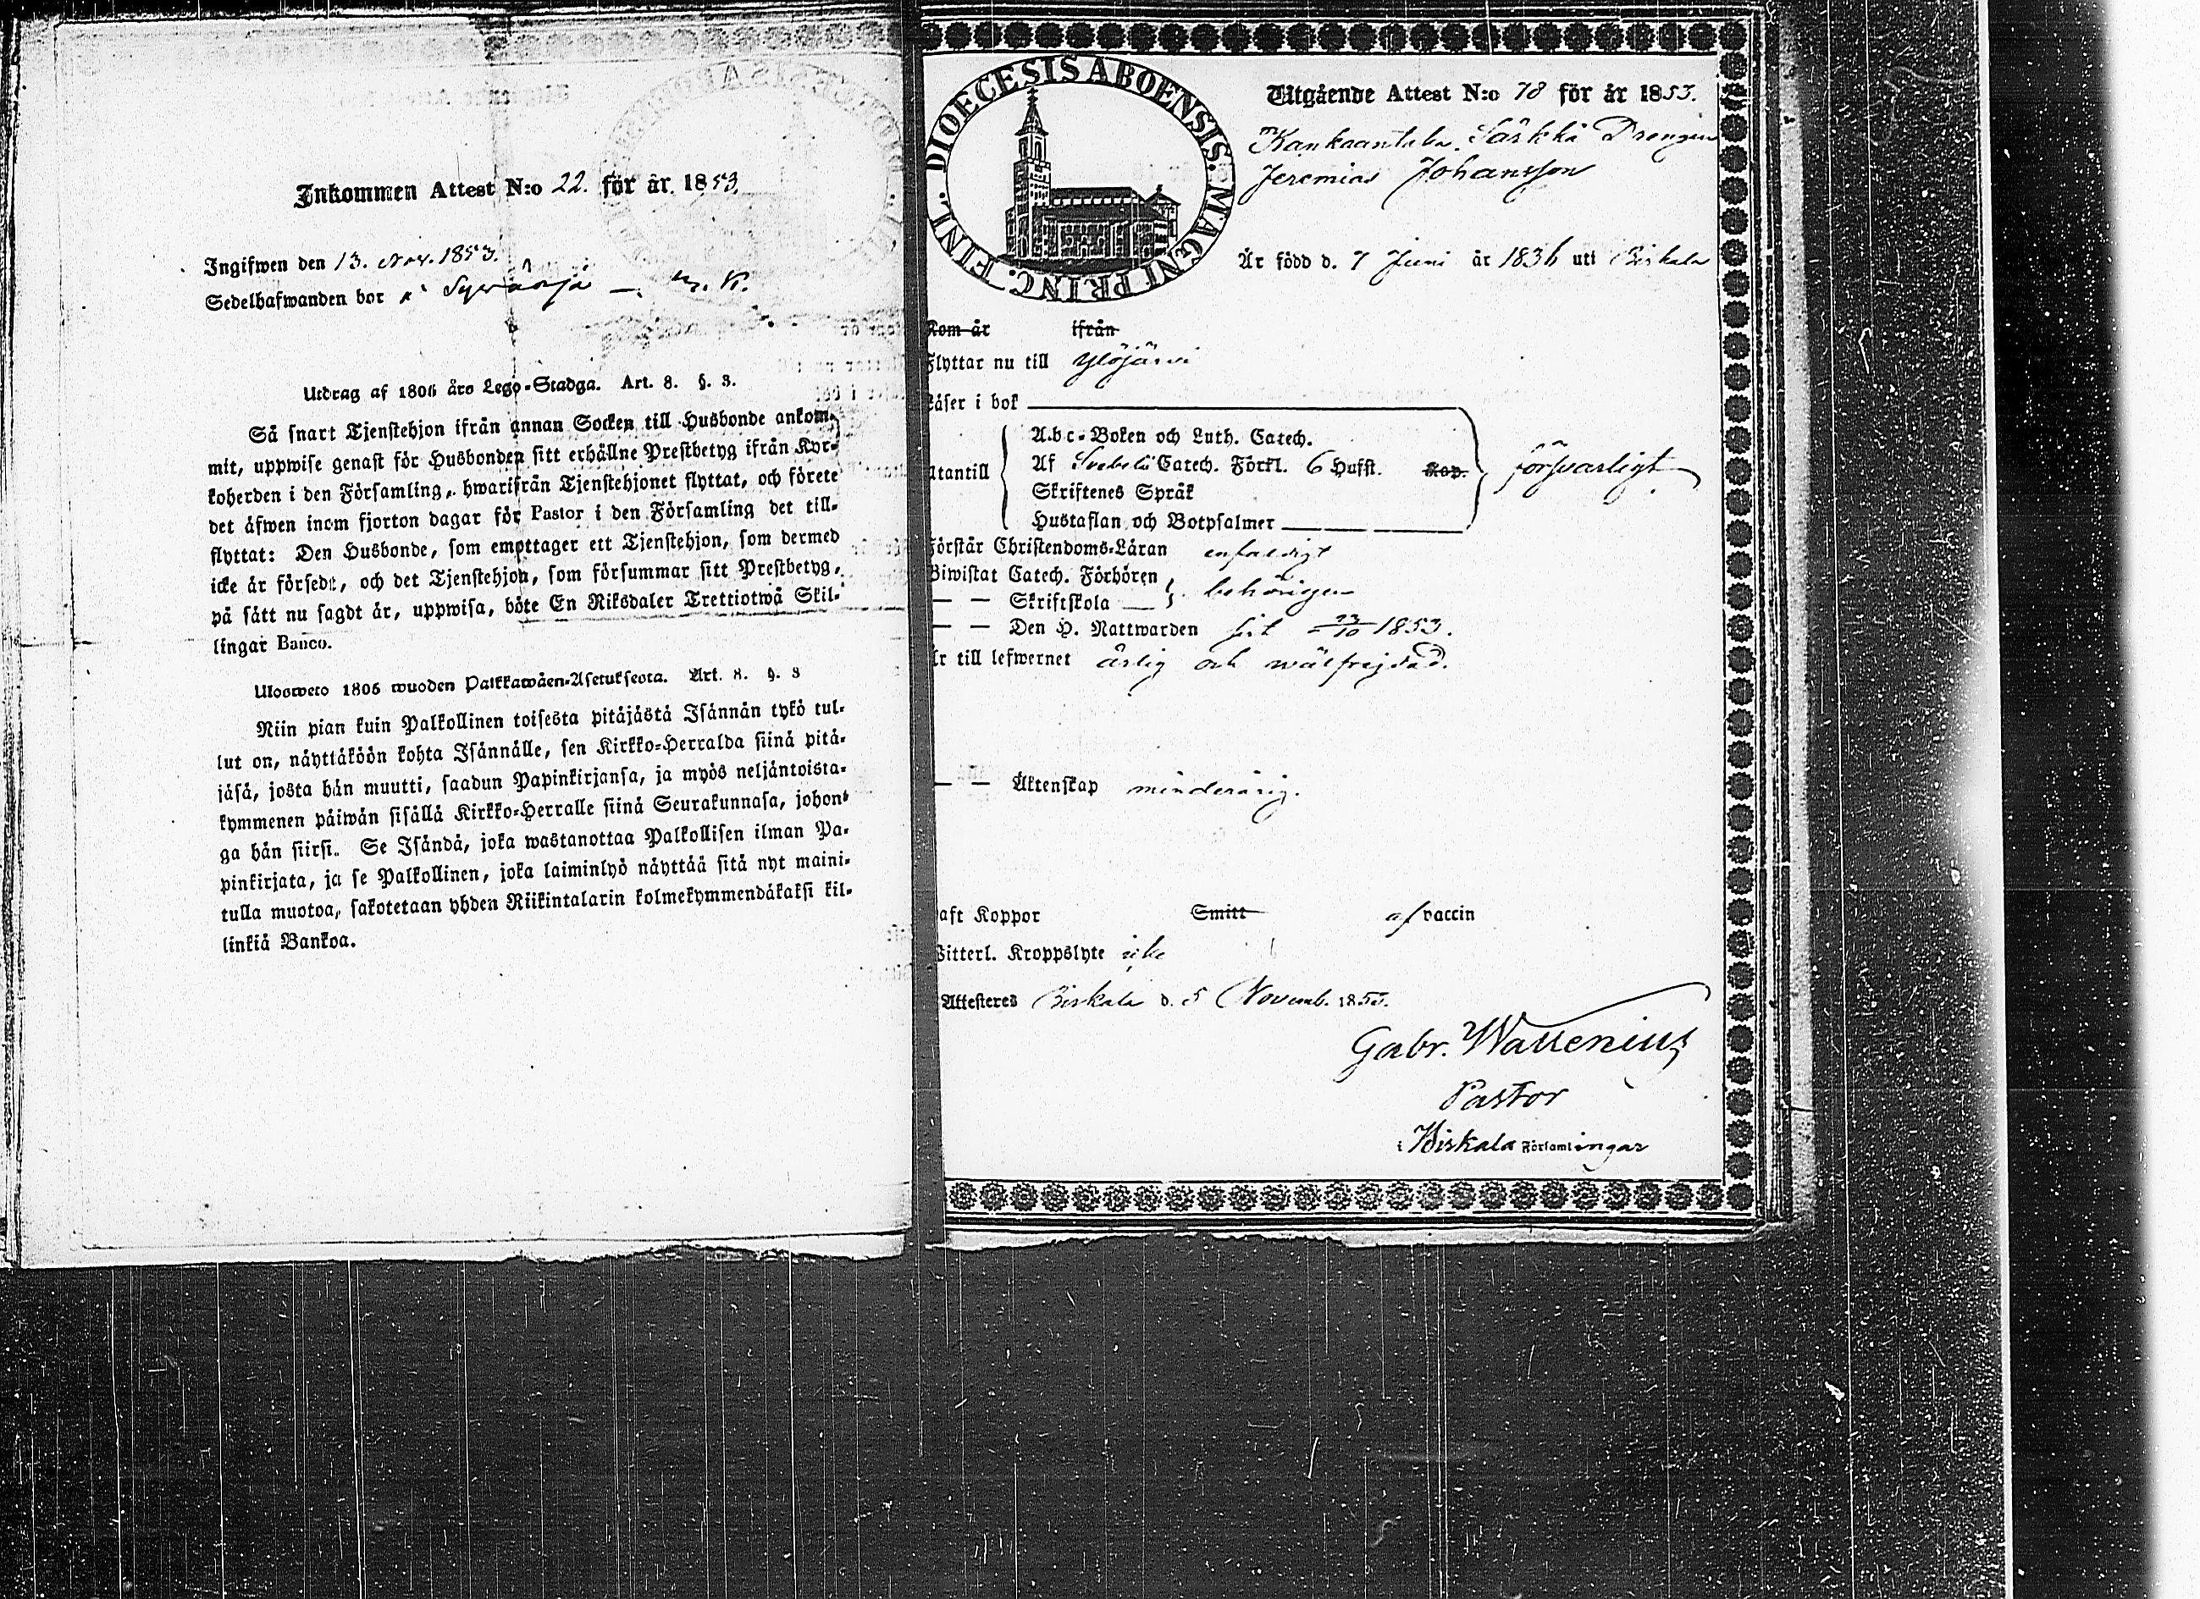 Inkommen Attest N:o 22. för år 1853.
Ingifwen den 13. Nov. 1853.
Sedelhafwanden bor
Utdrag af 1806 års Lego-Stadga. Art. 8. §. 3.
Så snart Tjenstehjon ifrån annan Socken till Husbonde ankom-
mit, uppwise genast för Husbonden sitt erhållne Prestbetyg ifrån Kyr-
koherden i den Församling, hwarifrån Tjenstehjonet flyttat, och förete
det äfwen inom fjorton dagar för Pastor i den Församling det till-
flyttat: Den Husbonde, som emottager ett Tjenstehjon, som dermed
icke är försedt, och det Tjenstehjon, som försummar sitt Prestbetyg,
på sätt nu sagdt är, uppwisa, böte En Riksdaler Trettiotwå Skil-
lingar Banco.
Ulosweto 1805 wuoden Palkkawäen-Asetuksesta. Art. 8. §. 3
Niin pian kuin Palkollinen toisesta pitäjästä Isännän tykö tul-
lut on, näyttäköön kohta Isännälle, sen Kirkko-Herralda siinä pitä-
jäsä, josta hän muutti, saadun Papinkirjansa, ja myös neljäntoista-
kymmenen päiwän sisällä Kirkko-Herralle siinä Seurakunnasa, johon-
ga hän siirsi. Se Isändä, joka wastanottaa Palkollisen ilman Pa-
pinkirjata, ja se Palkollinen, joka laiminlyö näyttää sitä nyt maini-
tulla muotoa, sakotetaan yhden Riikintalarin kolmekymmendäkaksi kil-
linkiä Bankoa.
DIOECESIS ABOENSIS. MAGNI PRINC. FINL.
Utgående Attest N:o 78 för år 1853.
Särkkä Drengen
Jeremias Johansson
Är född d. 7 Juni år 1836 uti Birkala
Kom år ifrån
Flyttar nu till Ylöjärvi
Läser i bok
Utantill
Abc-Boken och Luth. Catech.
Af Svebelii Catech. Förkl. 6 Hufst. Kap.
Skriftenes Språk
Hustaflan och Botpsalmer
försvarligt
Förstår Christendoms-Läran enfaldigt
Biwistat Catech. Förhören
— — Skriftskola
behörigen
— — Den H. Nattwarden sist 23/10 1853.
Är till lefwernet ärlig och wälfrejdad.
— — Äktenskap minderårig.
Haft Koppor Smitt af vaccin
Witterl. Kroppslyte icke
Attesteres Birkala d. 5 Novemb. 1853.
Gabr. Wallenius
Pastor
i Birkala Församlingar